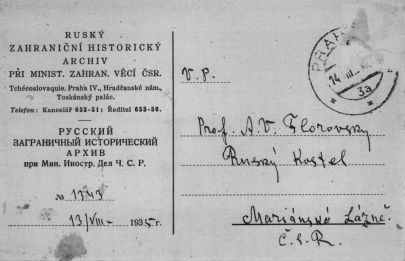 RUSKÝ
ZAHRANIČNÍ HISTORICKÝ
ARCHIV
PŘI MINIST. ZAHRAN. VĚCÍ ČSR.
Tchécoslovaquie, Praha IV., Hradčanské nám.,
Toskánský palác.
Telefon: Kancelář 653-51; Ředitel 653-56.
РУССКИЙ
ЗАГРАНИЧНЫЙ ИСТОРИЧЕСКИЙ
АРХИВ
при Мин. Иностр. Дел Ч. С. Р.
№ 1343
13/VIII- 1935г.
V. P.
Prof. A.V. Florovsky
Ruský Kostel
Mariánské Lázně.
Č.S.R.
PRAHA
14. III
3a